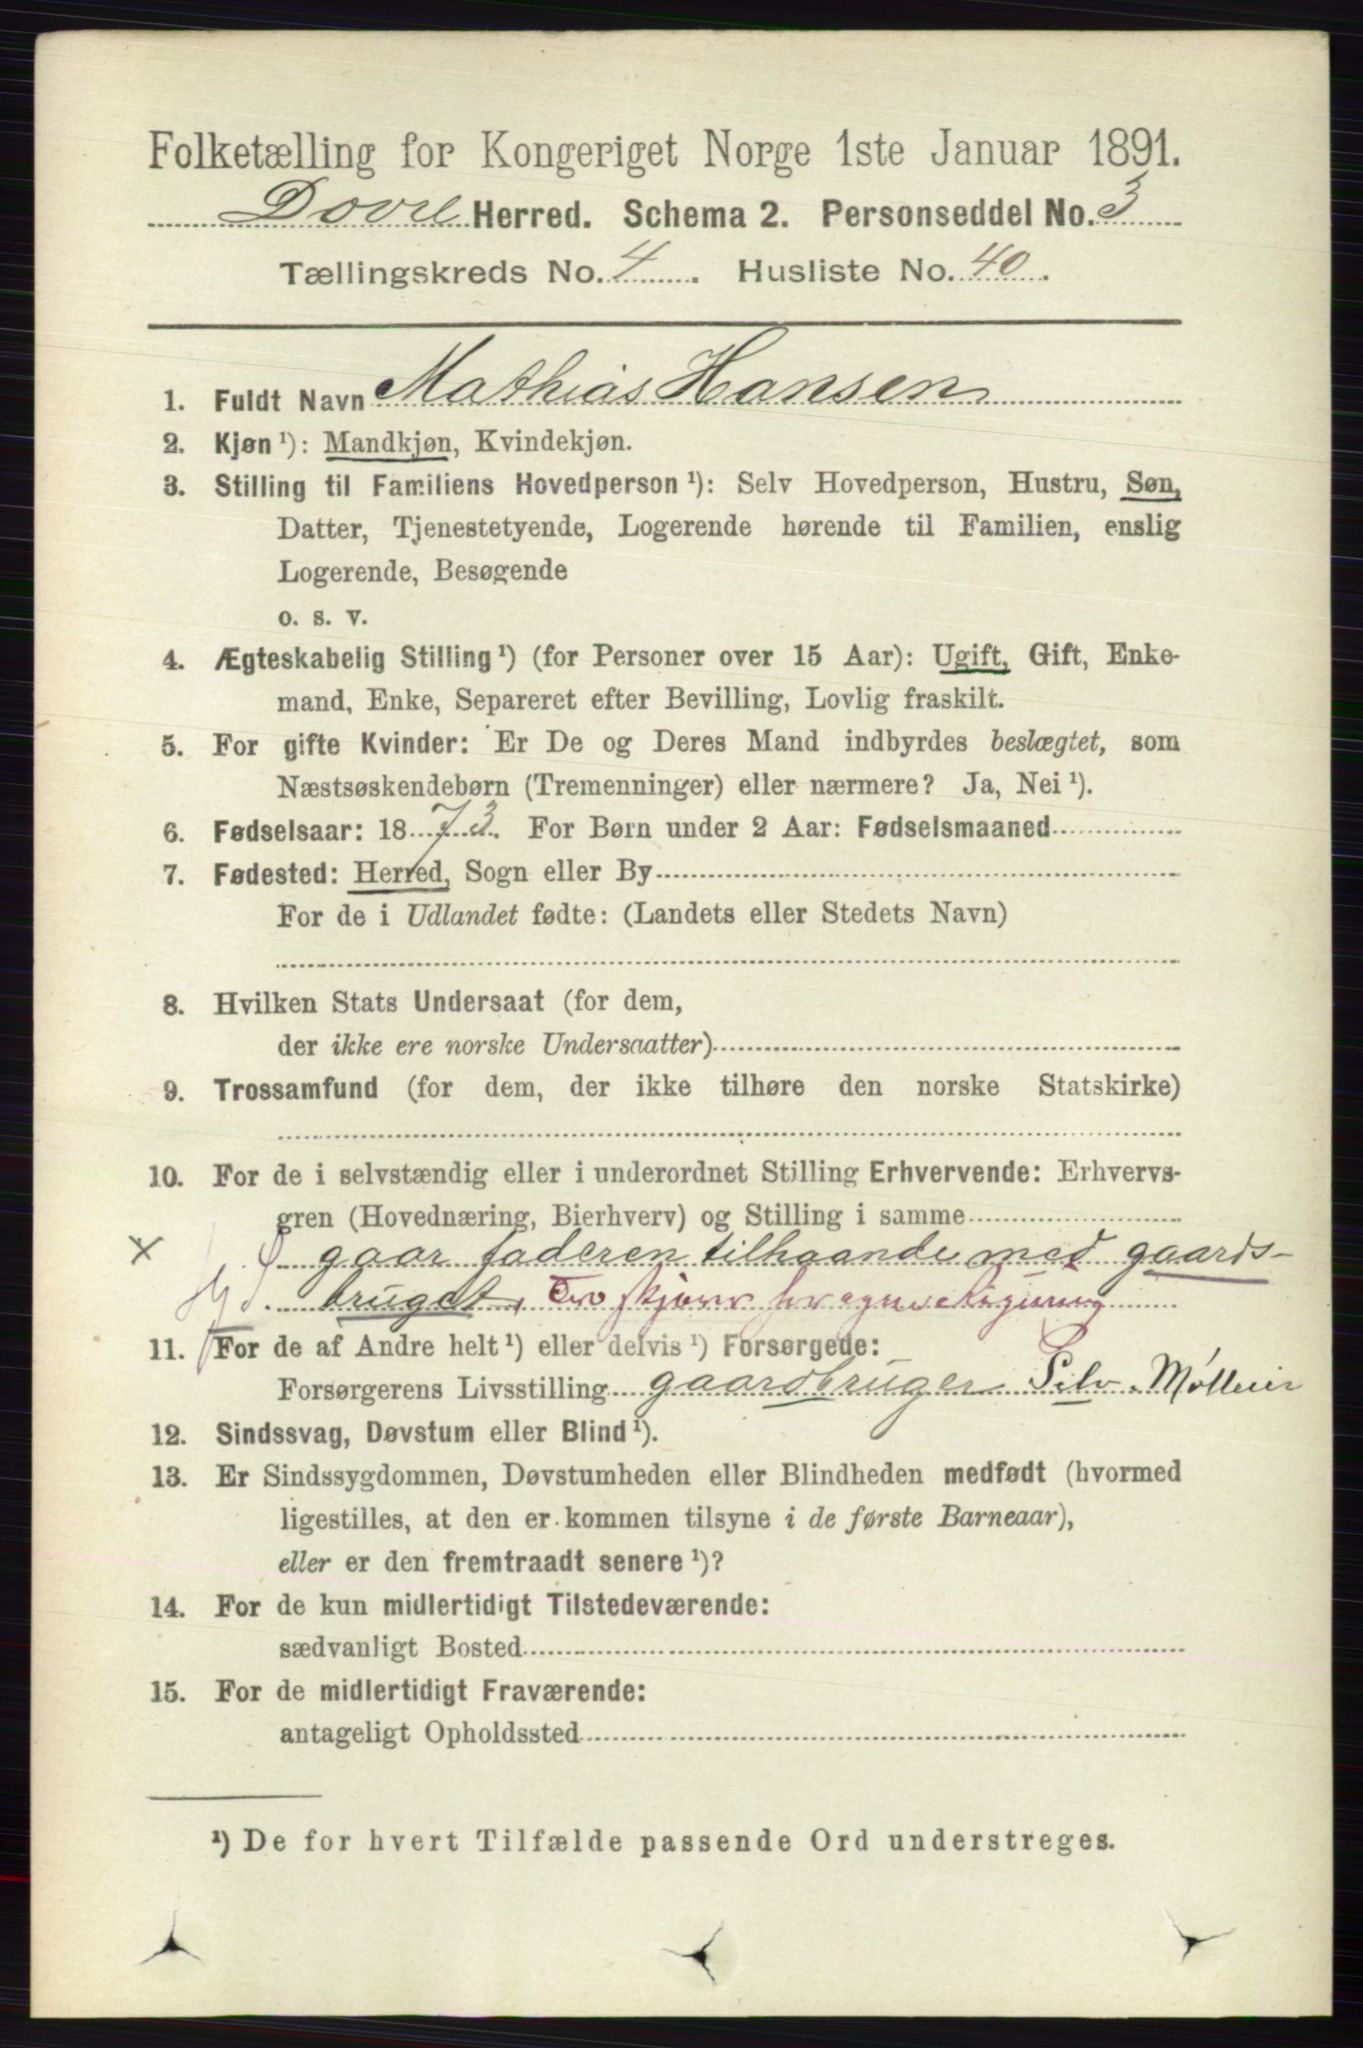 Folketælling for Kongeriget Norge 1ste Januar 1891.
Dovre Herred. Schema 2. Personseddel No. 3
Tællingskreds No. 4. Husliste No. 40.
1. Fuldt Navn Mathias Hansen
2. Kjøn ¹): Mandkjøn, Kvindekjøn.
3. Stilling til Familiens Hovedperson ¹): Selv Hovedperson, Hustru, Søn,
Datter, Tjenestetyende, Logerende hørende til Familien, enslig
Logerende, Besøgende
o. s. v.
4. Ægteskabelig Stilling ¹) (for Personer over 15 Aar): Ugift, Gift, Enke-
mand, Enke, Separeret efter Bevilling, Lovlig fraskilt.
5. For gifte Kvinder: Er De og Deres Mand indbyrdes beslægtet, som
Næstsøskendebørn (Tremenninger) eller nærmere? Ja, Nei ¹).
6. Fødselsaar: 1873. For Børn under 2 Aar: Fødselsmaaned
7. Fødested: Herred, Sogn eller By
For de i Udlandet fødte: (Landets eller Stedets Navn)
8. Hvilken Stats Undersaat (for dem,
der ikke ere norske Undersaatter)
9. Trossamfund (for dem, der ikke tilhøre den norske Statskirke)
10. For de i selvstændig eller i underordnet Stilling Erhvervende: Erhvervs-
gren (Hovednæring, Bierhverv) og Stilling i samme
x gaar faderen tilhaande med gaards-
bruget,
11. For de af Andre helt ¹) eller delvis ¹) Forsørgede:
Forsørgerens Livsstilling gaardbruger Selv.
12. Sindssvag, Døvstum eller Blind ¹).
13. Er Sindssygdommen, Døvstumheden eller Blindheden medfødt (hvormed
ligestilles, at den er kommen tilsyne i de første Barneaar),
eller er den fremtraadt senere ¹)?
14. For de kun midlertidigt Tilstedeværende:
sædvanligt Bosted
15. For de midlertidigt Fraværende:
antageligt Opholdssted
¹) De for hvert Tilfælde passende Ord understreges.